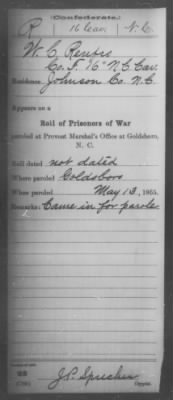 (Confederate.)
R 16 Cav. N.C.
W. C. Renfro
Co. F. 16" N C Cav.
Residence Johnson Co. N.C.
Appears on a
Roll of Prisoners of War
paroled at Provost Marshal's Office at Goldsboro,
N. C.
Roll dated not dated
Where paroled Goldsboro
When paroled May 13, 1865.
Remarks: Came in for parole
J.P. Sprecher
Copyist.